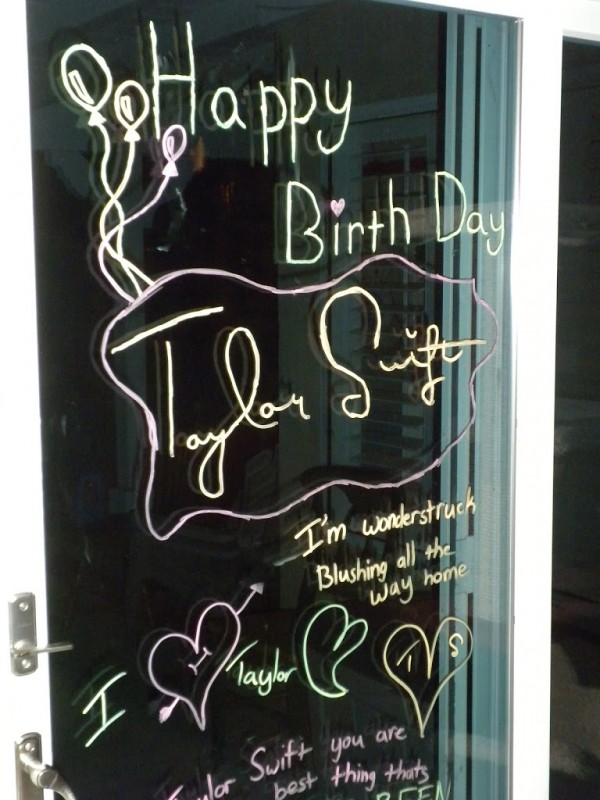 Happy
Birth Day
Taylor Swift
I'm wonderstruck
Blushing all the
way home
I Taylor T S
Taylor Swift you are
best thing thats
BEEN